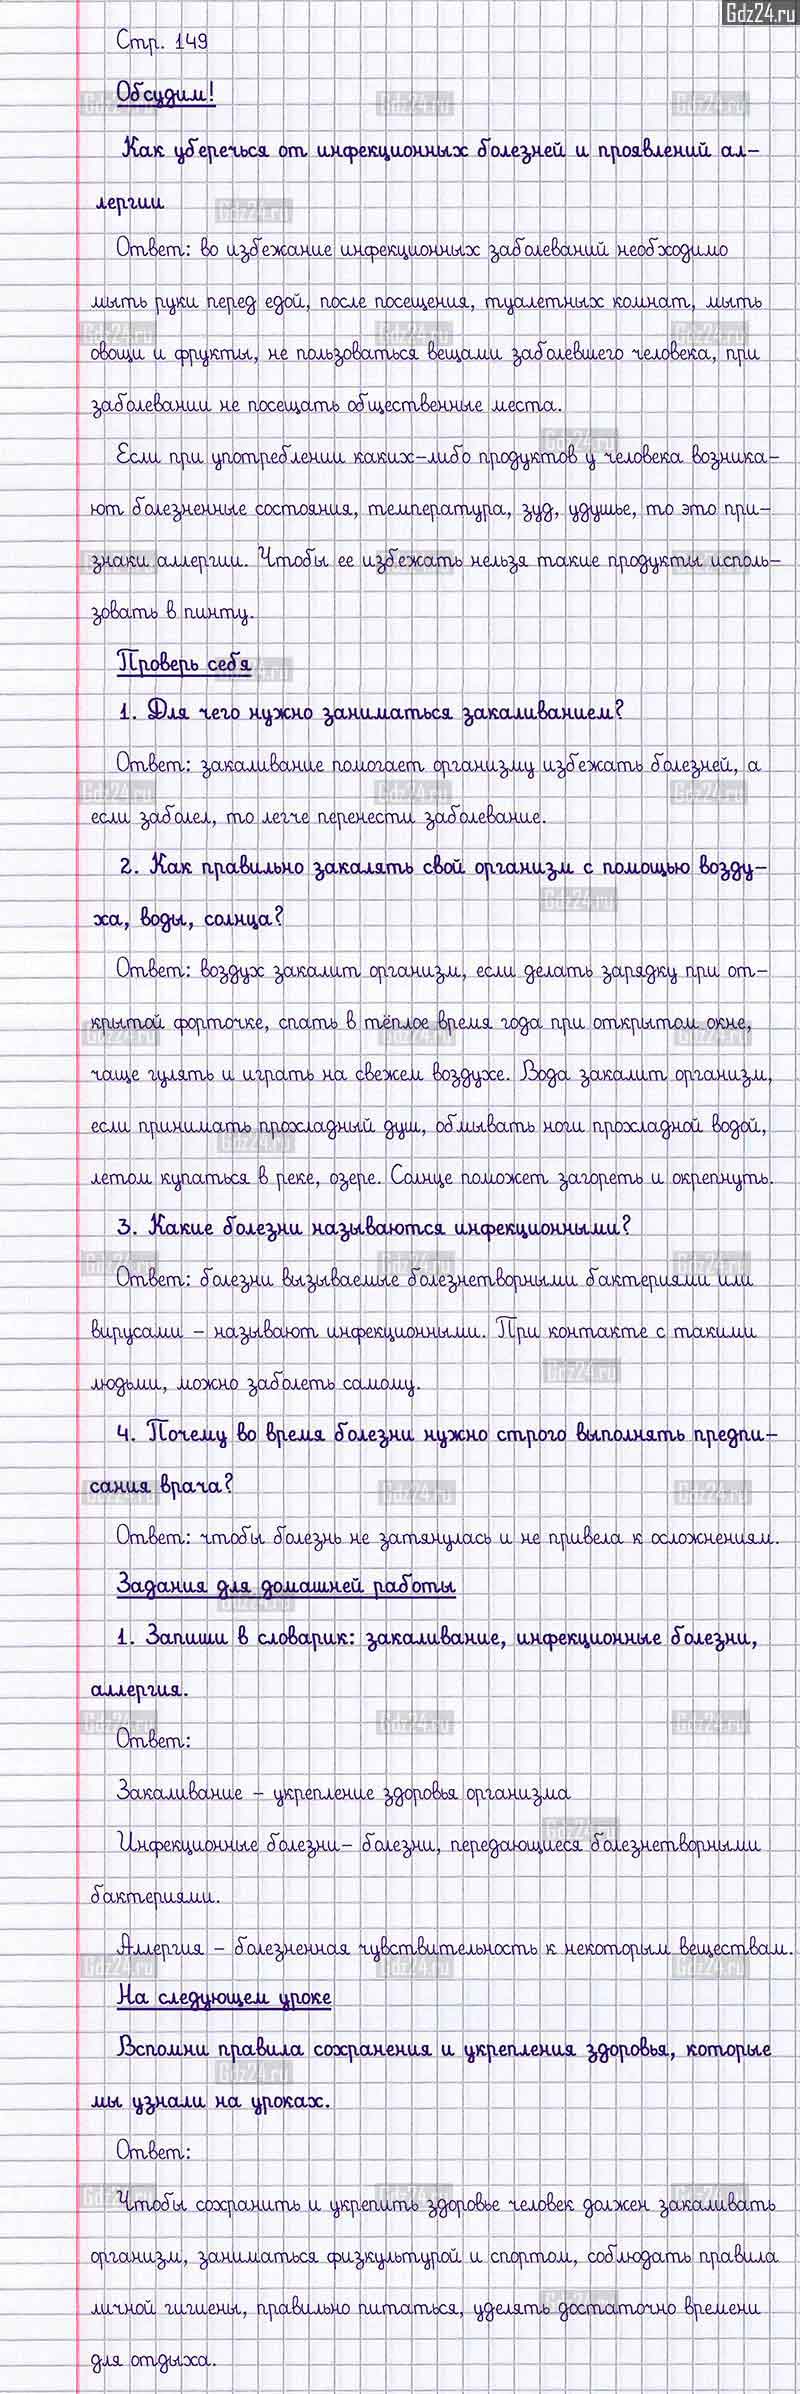 Gdz24.ru
Стр. 149
Обсудим!
Как уберечься от инфекционных болезней и проявлений ал-
лергии
Ответ: во избежание инфекционных заболеваний необходимо
мыть руки перед едой, после посещения, туалетных комнат, мыть
овощи и фрукты, не пользоваться вещами заболевшего человека, при
заболевании не посещать общественные места.
Если при употреблении каких-либо продуктов у человека возника-
ют болезненные состояния, температура, зуд, удушье, то это при-
знаки аллергии. Чтобы ее избежать нельзя такие продукты исполь-
зовать в пинту.
Проверь себя
1. Для чего нужно заниматься закаливанием?
Ответ: закаливание помогает организму избежать болезней, а
если заболел, то легче перенести заболевание.
2. Как правильно закалять свой организм с помощью возду-
ха, воды, солнца?
Ответ: воздух закалит организм, если делать зарядку при от-
крытой форточке, спать в тёплое время года при открытом окне,
чаще гулять и играть на свежем воздухе. Вода закалит организм,
если принимать прохладный душ, обмывать ноги прохладной водой,
летом купаться в реке, озере. Солнце поможет загореть и окрепнуть.
3. Какие болезни называются инфекционными?
Ответ: болезни вызываемые болезнетворными бактериями или
вирусами - называют инфекционными. При контакте с такими
людьми, можно заболеть самому.
4. Почему во время болезни нужно строго выполнять предпи-
сания врача?
Ответ: чтобы болезнь не затянулась и не привела к осложнениям.
Задания для домашней работы
1. Запиши в словарик: закаливание, инфекционные болезни,
аллергия.
Ответ:
Закаливание - укрепление здоровья организма
Инфекционные болезни- болезни, передающиеся болезнетворными
бактериями.
Аллергия - болезненная чувствительность к некоторым веществам.
На следующем уроке
Вспомни правила сохранения и укрепления здоровья, которые
мы узнали на уроках.
Ответ:
Чтобы сохранить и укрепить здоровье человек должен закаливать
организм, заниматься физкультурой и спортом, соблюдать правила
личной гигиены, правильно питаться, уделять достаточно времени
для отдыха.